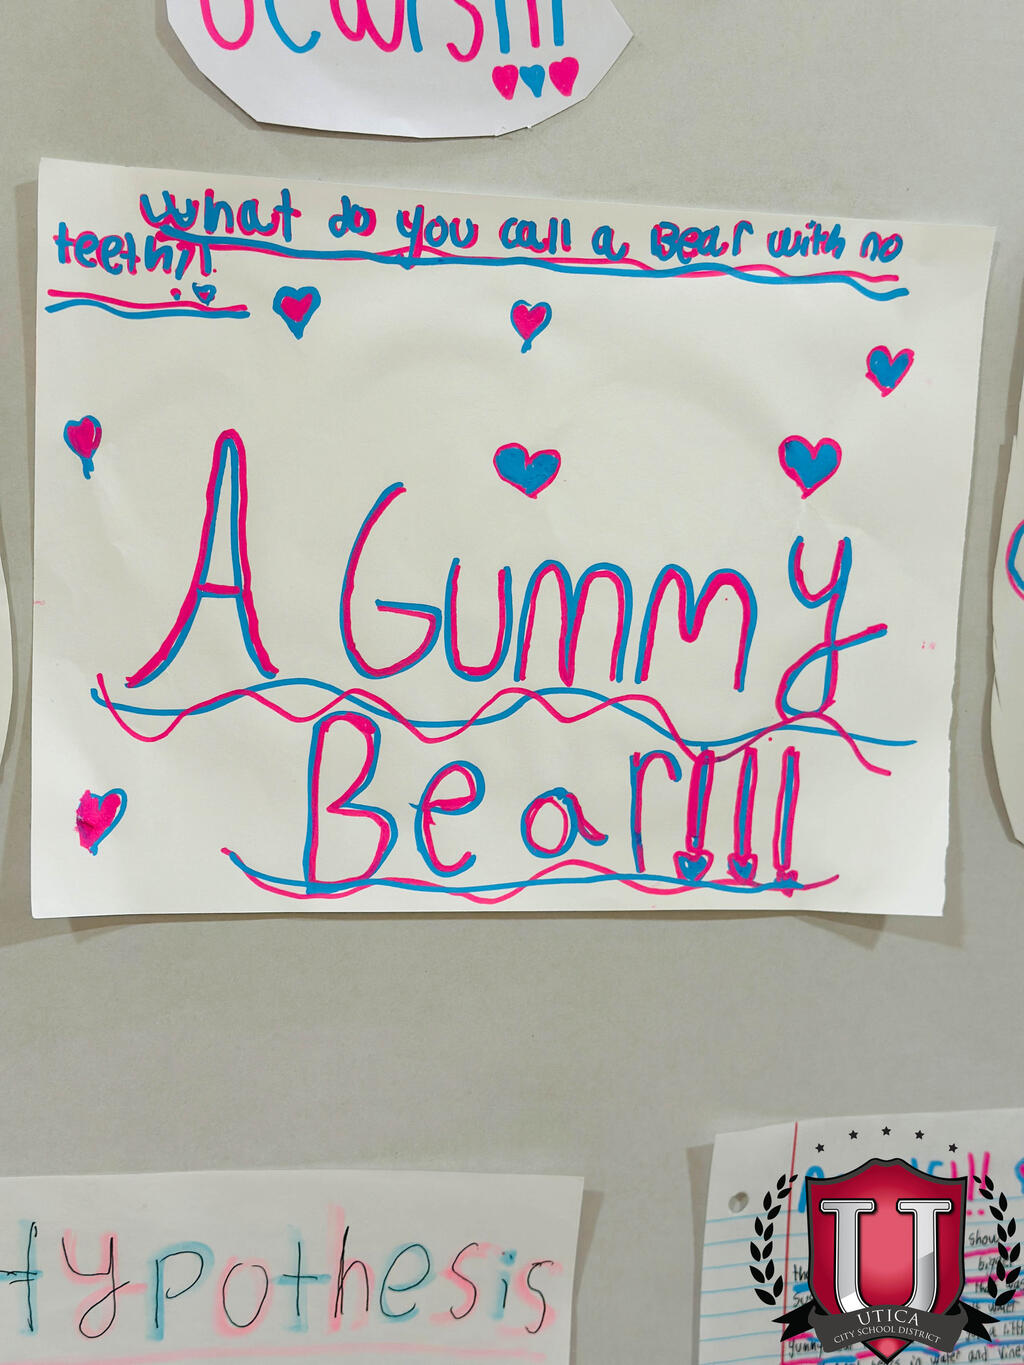 What do you call a Bear with no
teeth?!
A Gummy
Bear!!!
Hypothesis
UTICA
CITY SCHOOL DISTRICT